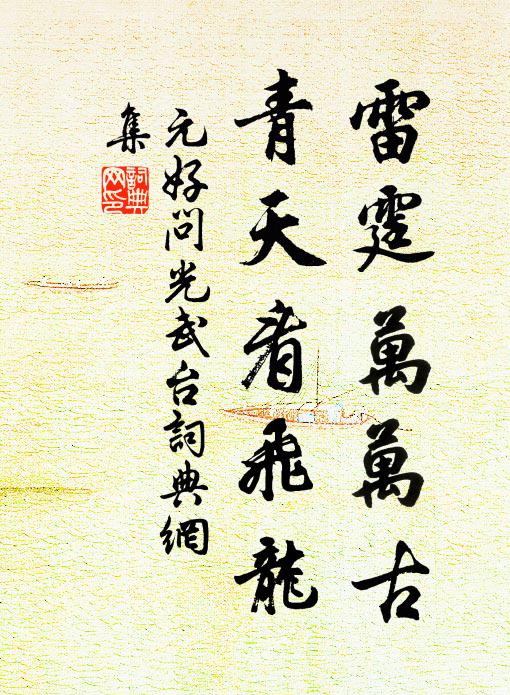 雷霆萬萬古
青天看飛龍
元好问光武台詞典網
集
詞典
网印